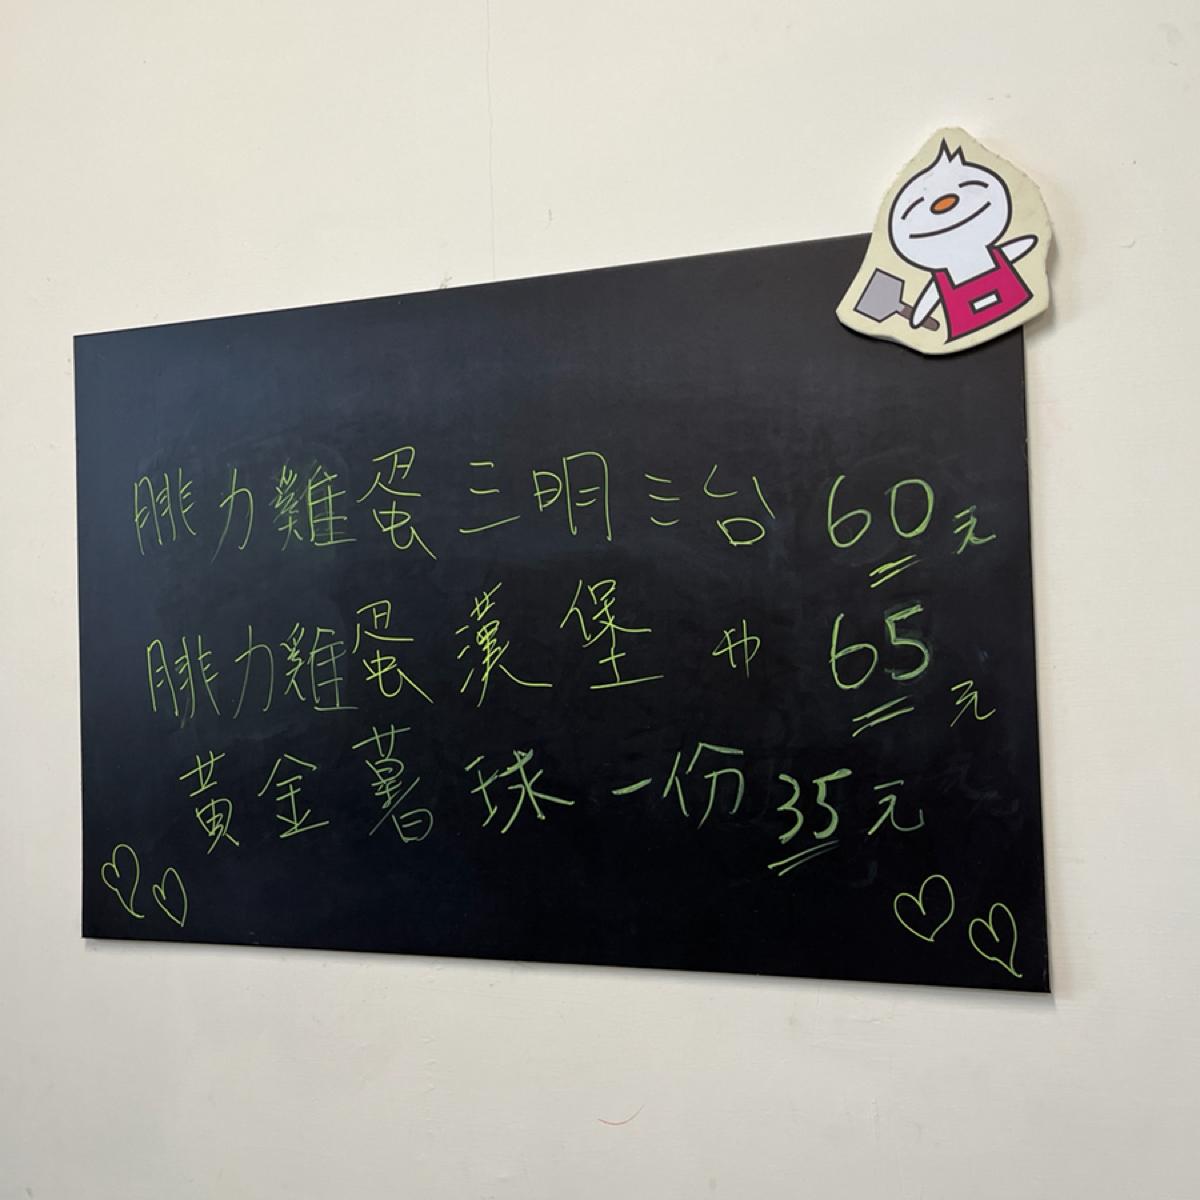 腓力雞蛋三明治 60元
腓力雞蛋漢堡 65元
黃金薯球一份35元